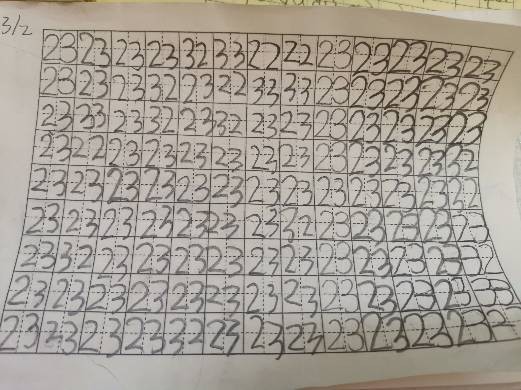 3/2
23 23 23 23 32 33 22 22 23 23 23 23 23
23 23 23 32 23 22 33 33 23 23 23 23 23
23 33 23 32 23 32 23 23 23 23 23 23 23
23 22 23 23 23 23 23 23 23 23 23 23 32
23 23 23 23 23 23 23 23 23 23 23 23 22
23 23 23 23 23 23 23 32 23 23 23 23 23
23 32 23 23 23 23 23 23 23 23 23 23 32
23 23 23 23 23 23 23 23 23 23 23 23 33
23 33 23 23 32 23 23 23 23 23 23 23